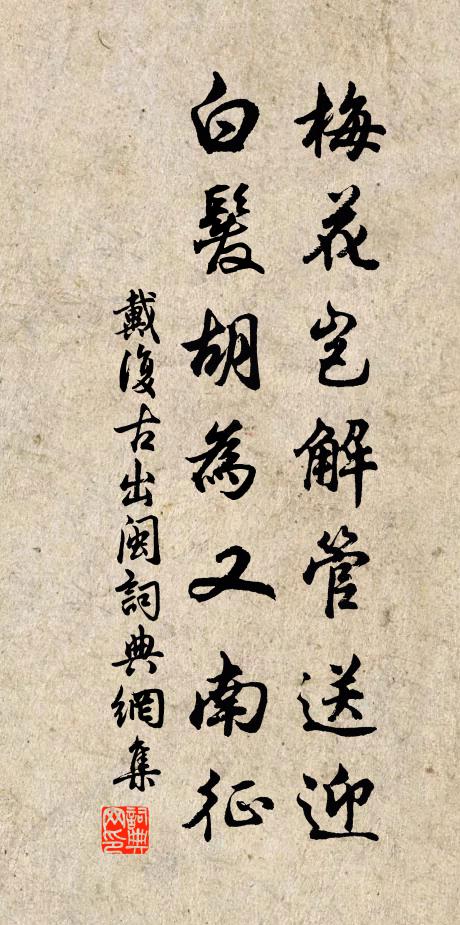 梅花岂解管送迎
白髮胡為又南征
戴復古出閩詞典網集
詞典網印